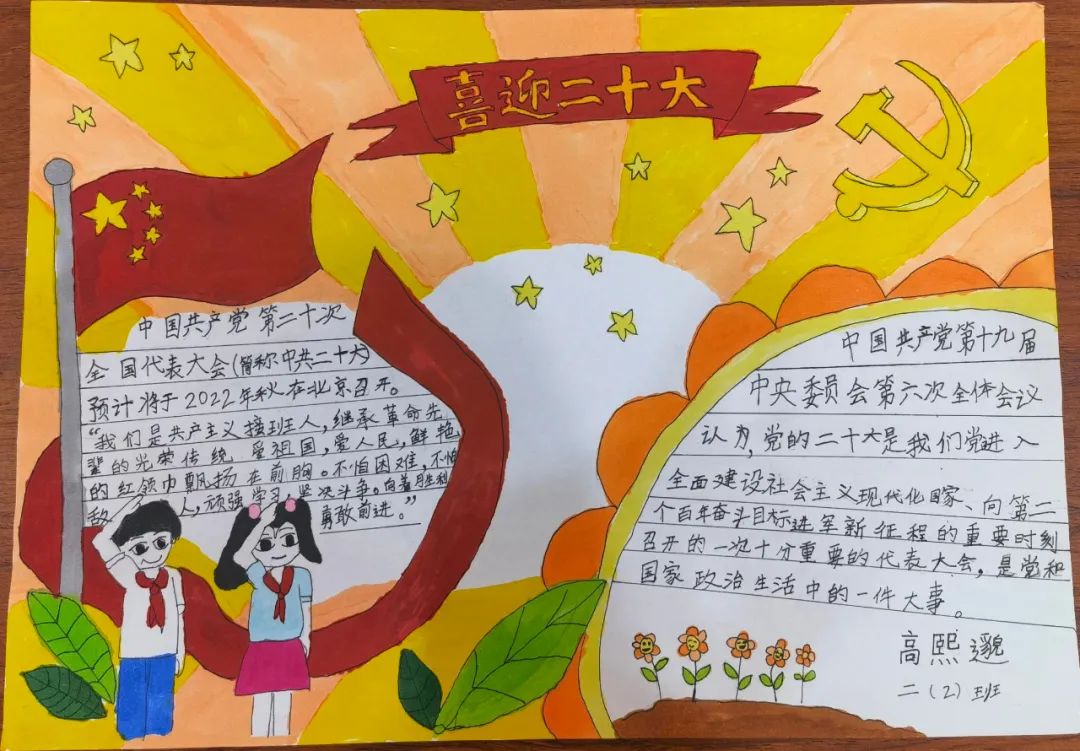 喜迎二十大
中国共产党第二十次
全国代表大会(简称中共二十大)
预计将于2022年秋在北京召开。
“我们是共产主义接班人,继承革命先
辈的光荣传统 爱祖国,爱人民,鲜艳
的红领巾飘扬在前胸。不怕困难,不怕
敌人,顽强学习,坚决斗争。向着胜利
勇敢前进。”
中国共产党第十九届
中央委员会第六次全体会议
认为,党的二十大是我们党进入
全面建设社会主义现代化国家、向第二
个百年奋斗目标进军新征程的重要时刻
召开的一次十分重要的代表大会,是党和
国家政治生活中的一件大事。
高熙邈
二(2)班